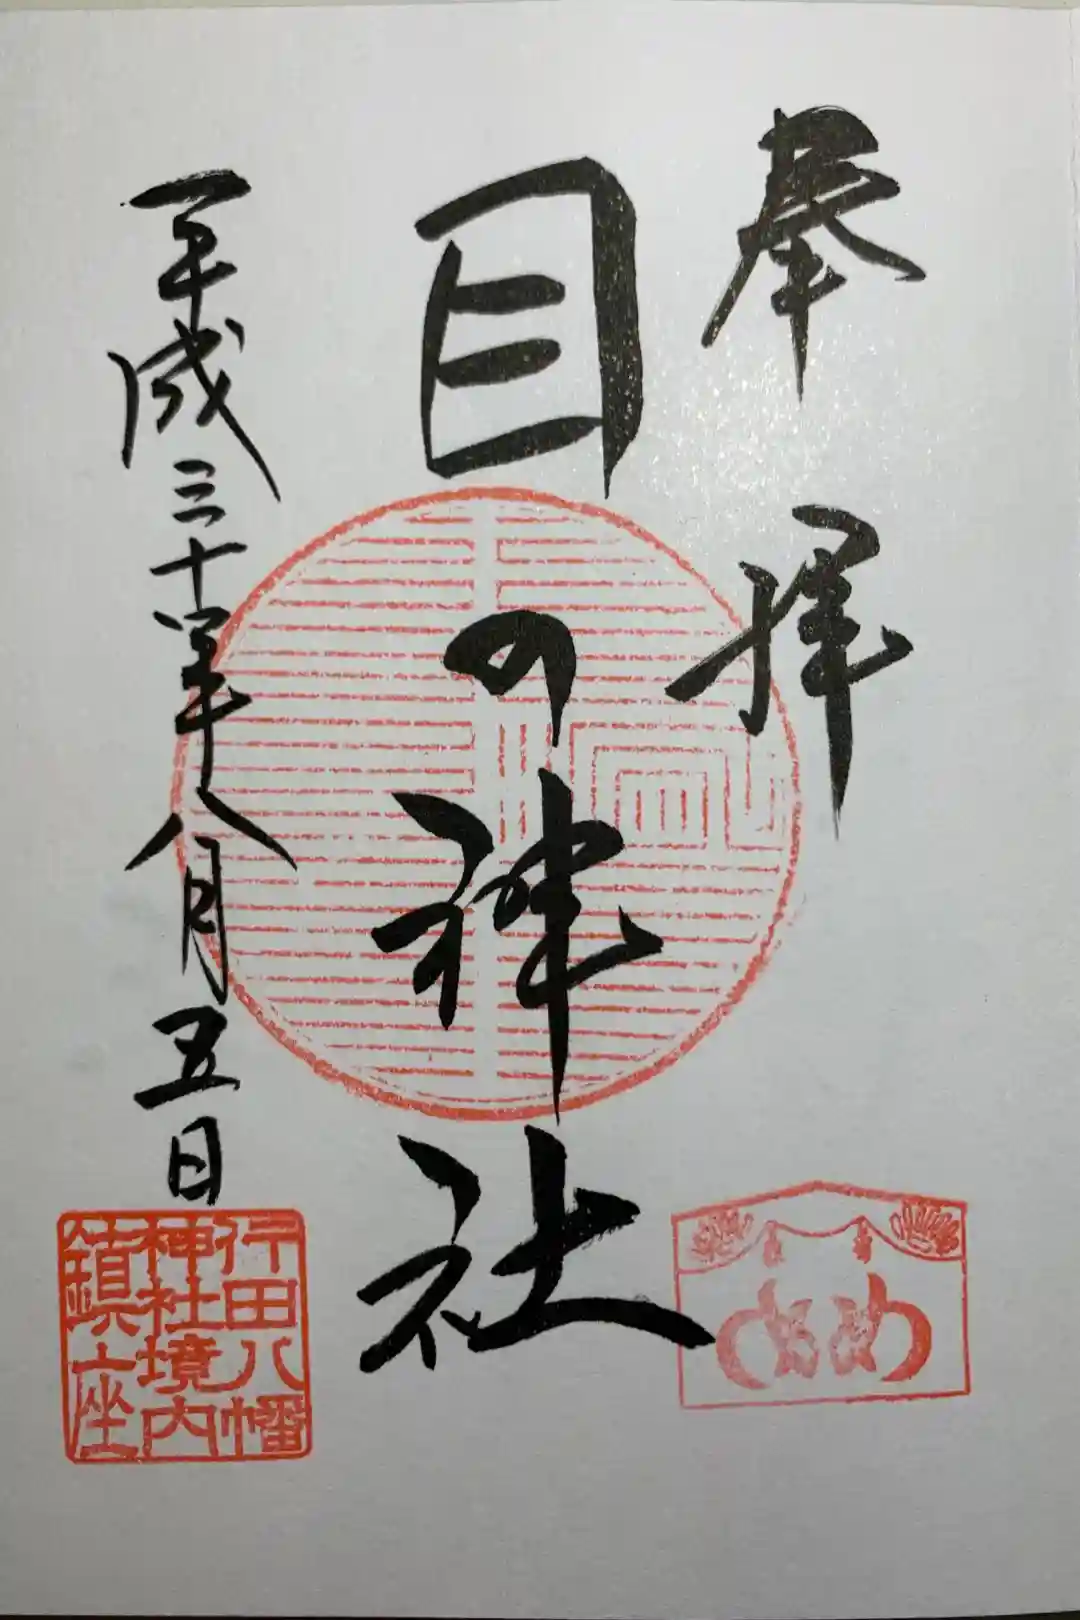 奉拝
目の神社
平成三十年八月五日
行田八幡
神社境内
鎮座
め